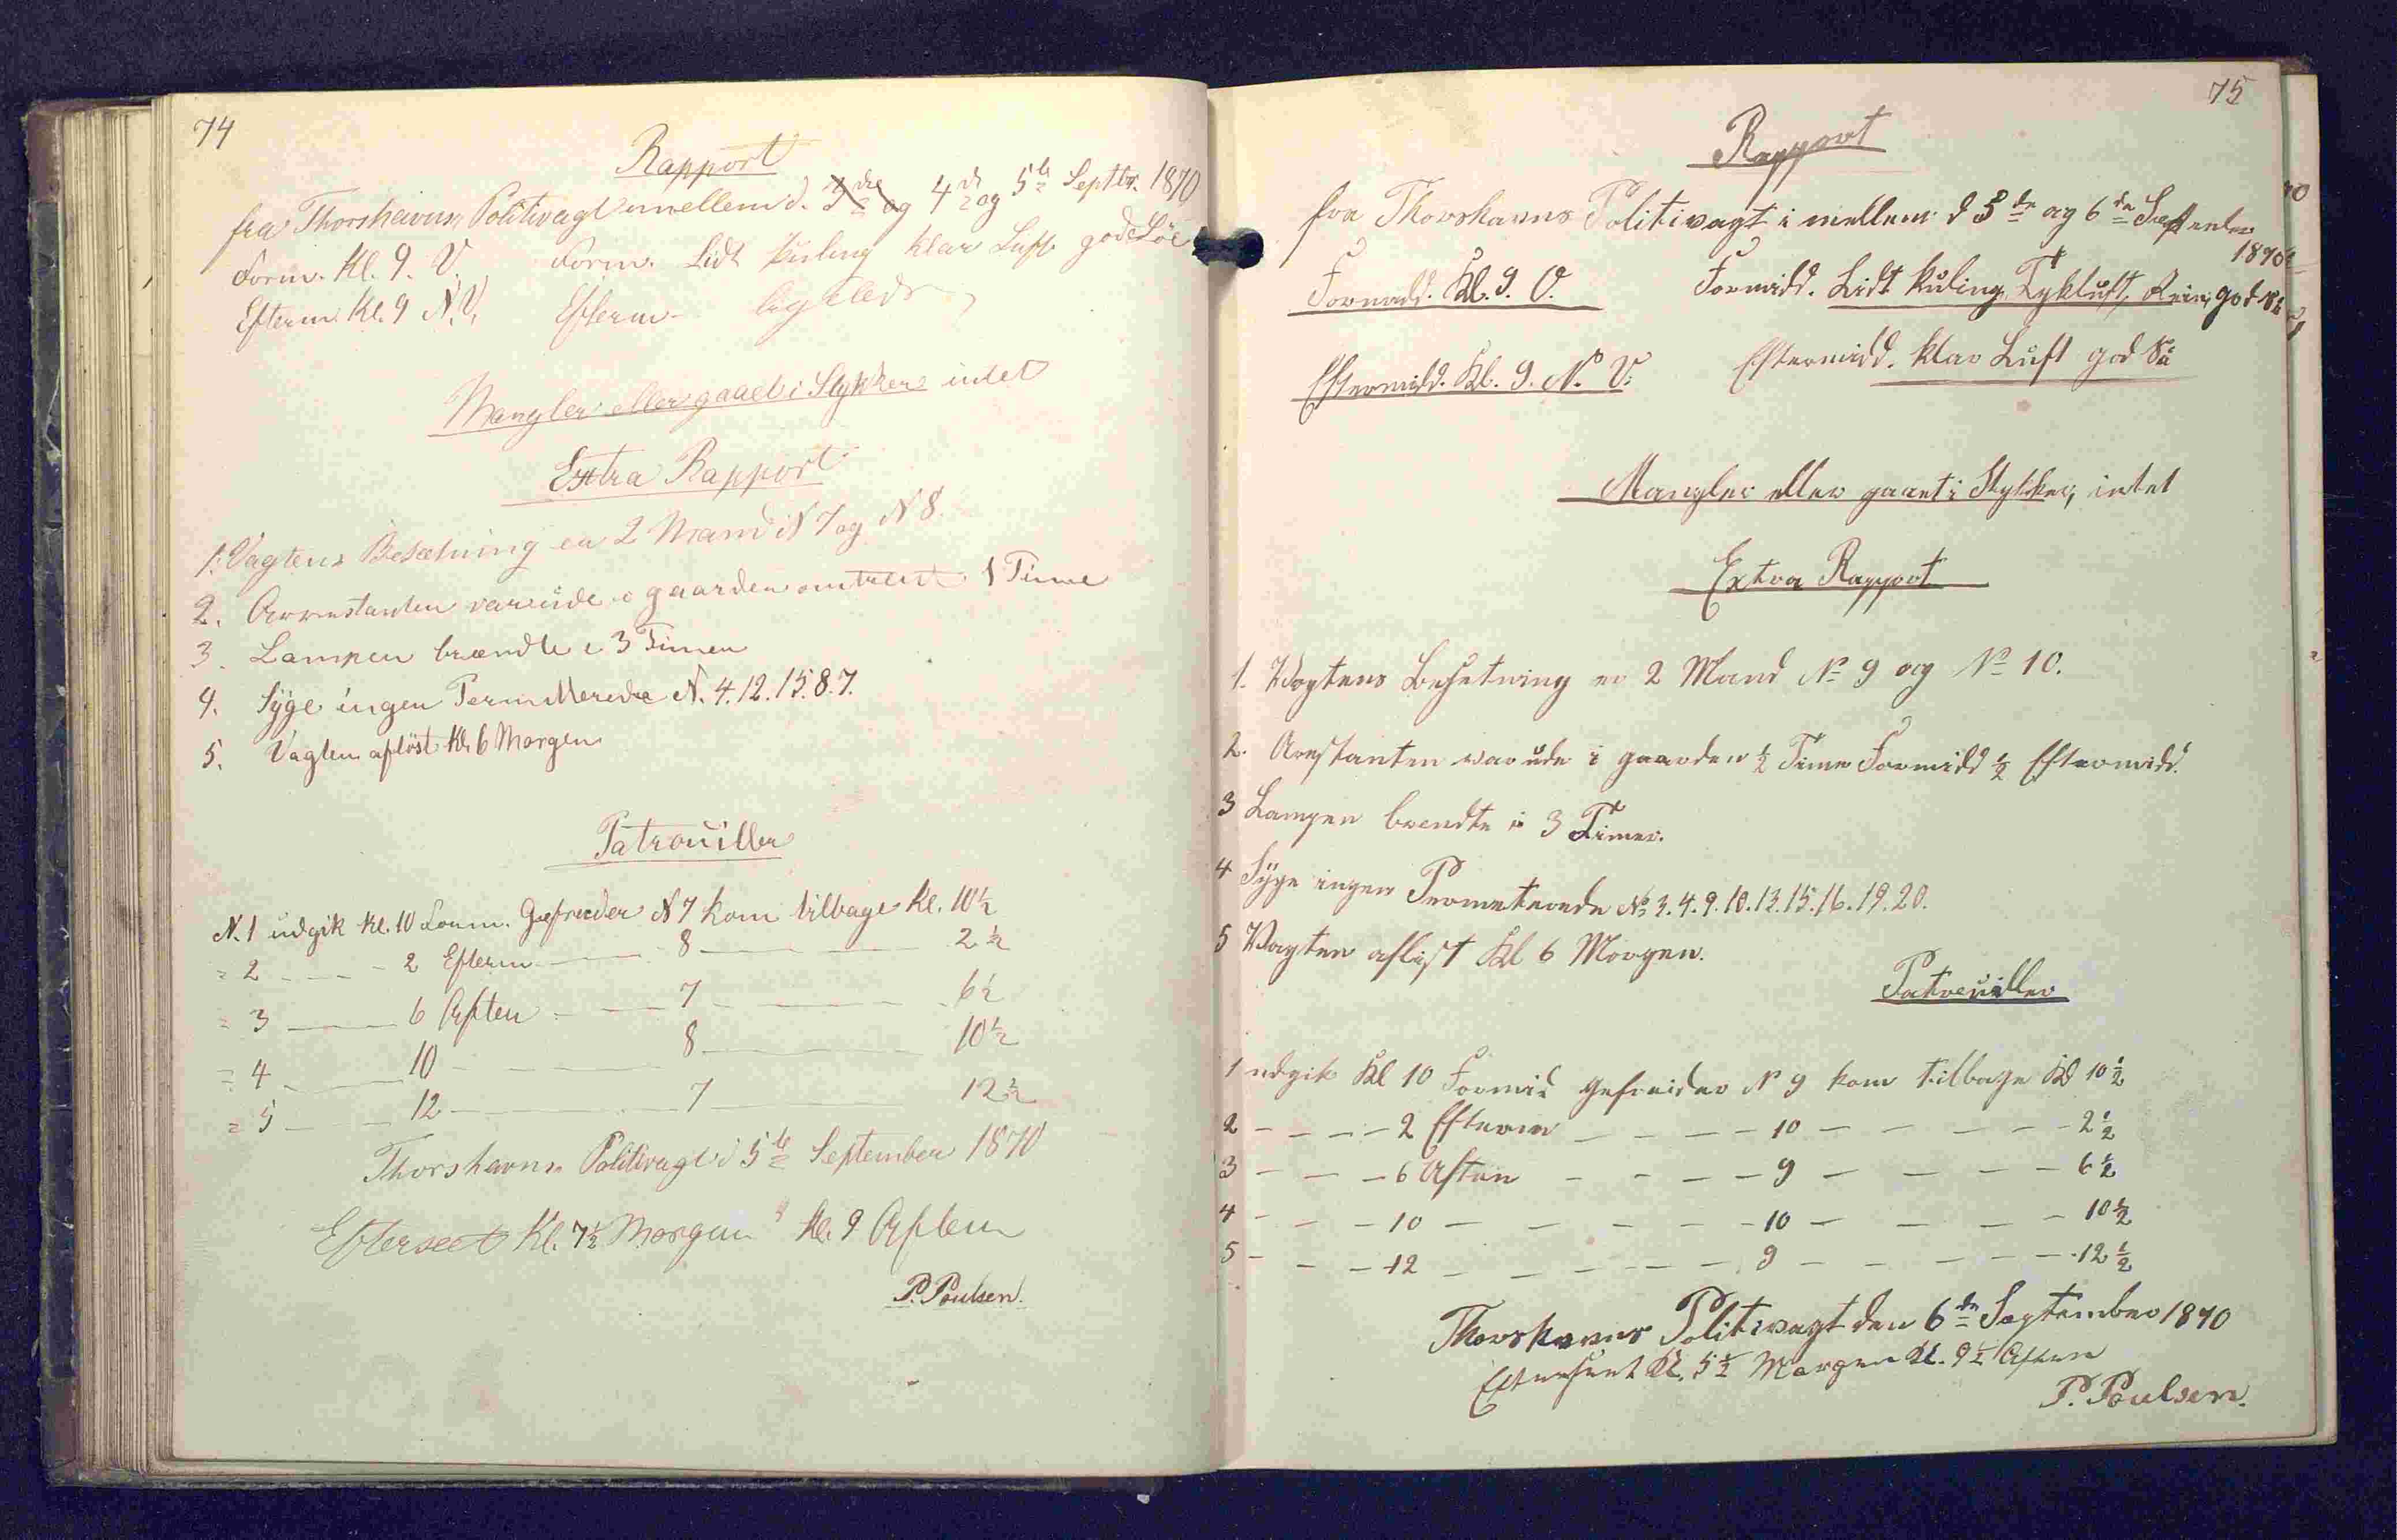 74
Rapport
fra Thorshavns Politivagt imellem d. 3die og 4de og 5te Septbr. 1870
Form. Kl. 9. V. Form. Lidt Kuling klar Luft god Söe
Efterm. Kl. 9 N.V. Efterm. ligeleds
Mangler eller gaaet i Stykker intet
Extra Rapport
1. Vagtens Besætning er 2 Mand N 7 og N 8.
2. Arrestanten var ude i gaarden omtrent 1 Time
3. Lampen brændte i 3 Timer
4. Syge ingen N. 4. 12. 15. 8. 7.
5. Vagten aflöst Kl. 6 Morgen
Patrouiller
N. 1 udgik Kl. 10 Form. Gefreider N 7 kom tilbage Kl. 10½
= 2 — 2 Efterm — 8 — 2½
= 3 — 6 Aften — 7 — 6½
= 4 — 10 — 8 — 10½
= 5 — 12 — 7 — 12½
Thorshavns Politivagt d 5te September 1870
Efterseet Kl. 7½ Morgen Kl. 9 Aften
P. Poulsen.
75
Rapport
fra Thorshavns Politivagt i mellem d 5te og 6te September
1870
Formidd. Kl. 9. V. Formidd. Lidt Kuling, Tykluft, Rein, god Sö
Eftermidd. Kl. 9. N. V. Eftermidd. klar Luft god Sö
Mangler eller gaaet i Stykker, intet
Extra Rapport
1. Vagtens Besetning er 2 Mand No 9 og No 10.
2. Arestanten var ude i gaarden ½ Time Formidd ½ Eftermidd.
3 Lampen brendte i 3 Timer.
4 Syge ingen No 3. 4. 9. 10. 13. 15. 16. 19. 20.
5 Vagten aflist Kl 6 Morgen.
Patrouiller
1 udgik Kl 10 Formid gefreider N 9 kom tilbage Kl 10½
2 — 2 Efterm — 10 — 2½
3 — 6 Aften — 9 — 6½
4 — 10 — 10 — 10½
5 — 12 — 9 — 12½
Thorshavns Politivagt den 6te September 1870
Efterseet Kl. 5½ Morgen Kl. 9½ Aften
P. Poulsen.